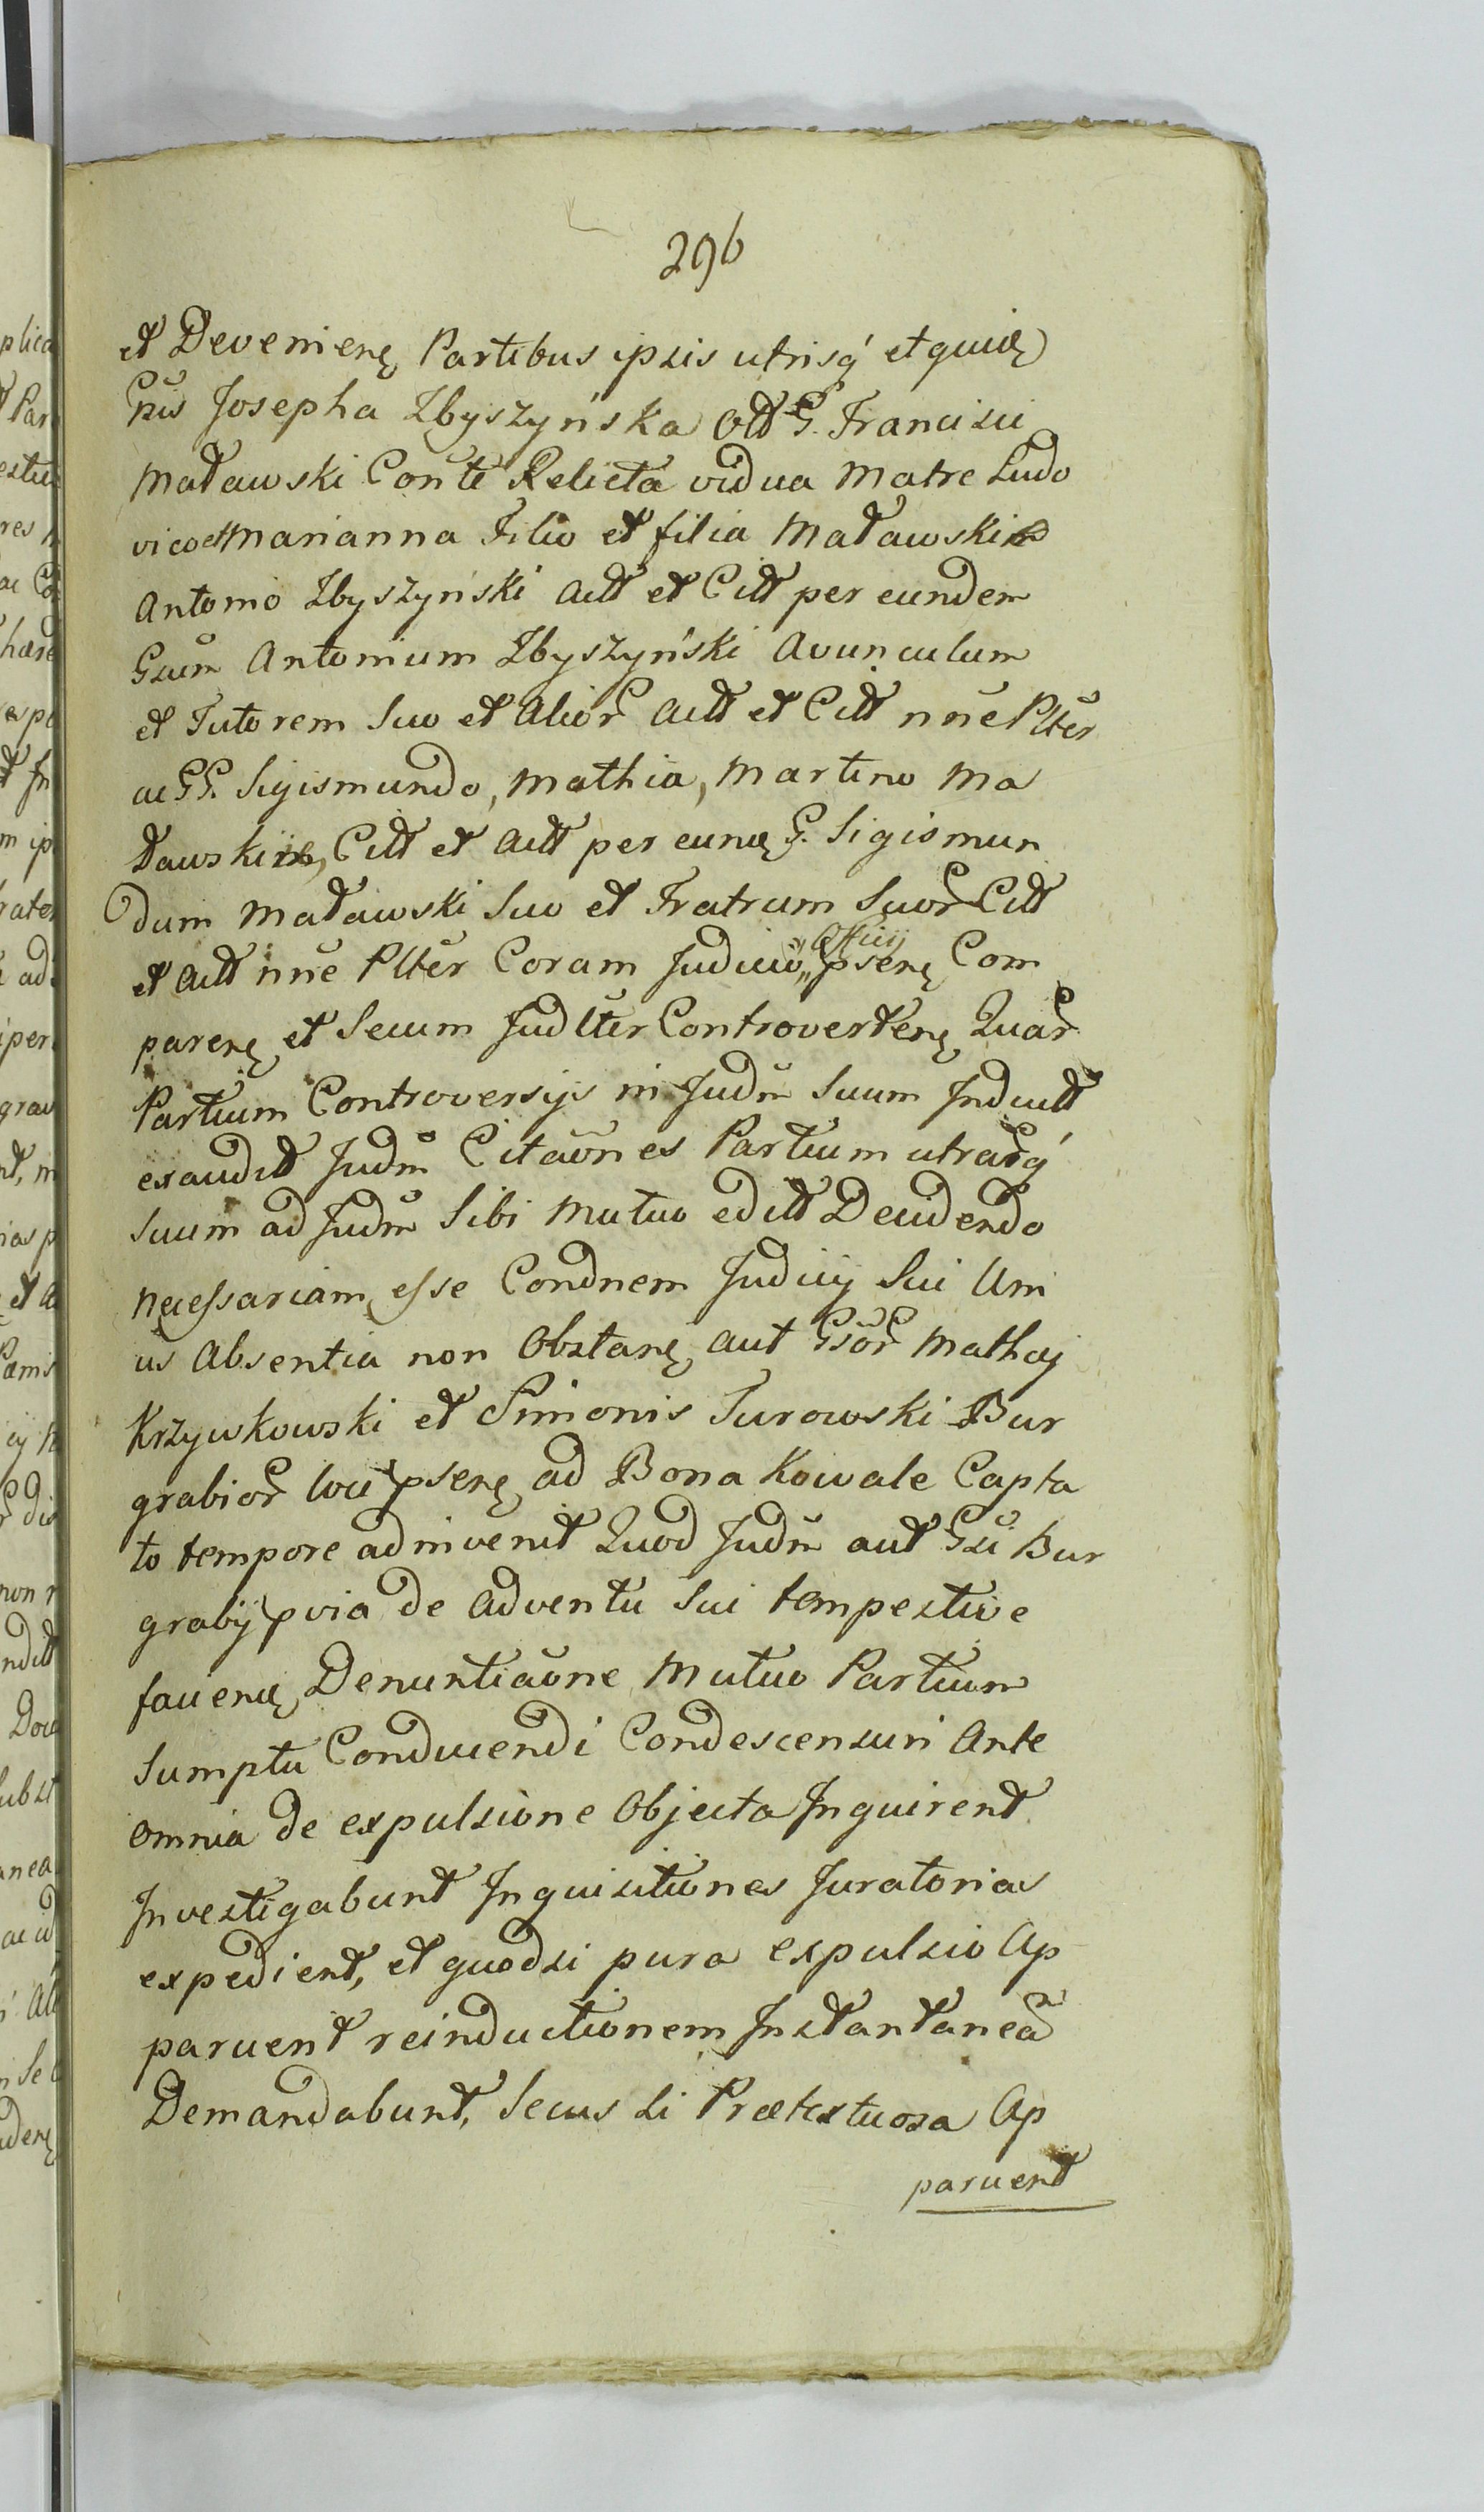 296
et Devenienę Partibus ipsis utrisq́ et quidę
Gñis Josepha Zbyszyńska Olt G. Francisci
Madawski Cońte Relicta vidua Matre Ludo
vico et Marianna Filio et filia Madawskie
Antonio Zbyszyński Actt et Citt per eundem
Gsum Antonium Zbyszyński Avunculum
et Tutorem Suo et Alior̃ Actt et Citt nñe Pltẽr
ac GG. Sigismundo, Mathia, Martino Ma
dawskiis, Citt et Actt per eundę G. Sigismun
dum Madawski Suo et Fratrum Suor̃ Citt
et Actt nñe Pltẽr Coram Judicio Officij psenę Com
parenę et Secum Judlter Controvertenę Quar̃
Partium Controversijs in Judm̃ Suum Inductt
exaudit Judm̃ Citãones Partium utrarq́
suum ad Judm̃ Sibi Mutuo editt Decidendo
necessariam esse Condnem Judicij Sui Uni
us Absentia non Obstanę aut Gsor̃ Mathæj
Krzywkowski et Simonis Turowski Bur
grabior̃ loci psenę ad Bona Kowale Capta
to tempore adinvenit Quod Judm̃ aut Gsi Bur
grabij pvia de Adventu Sui tempestive
faciendę Denuntiãone Mutuo Partium
Sumptu Conducendi Condescensuri Ante
omnia de expulsione Objecta Inquirent
Investigabunt Inquisitiones Juratorias
expedient, et quodsi pura expulsio Ap
paruent reinductionem Instantaneã
Demandabunt, Secus si Prætextuosa Ap
paruent